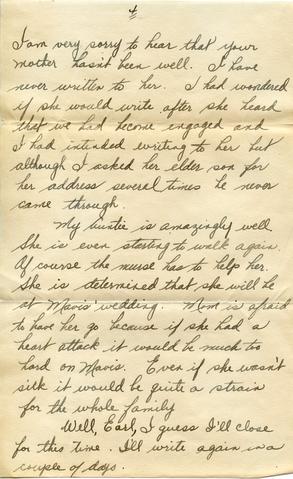 4
I am very sorry to hear that your
mother hasn't been well. I have
never written to her. I had wondered
if she would write after she heard
that we had become engaged and
I had intended writing to her but
although I asked her elder son for
her address several times he never
came through.
My auntie is amazingly well
She is even starting to walk again.
Of course the nurse has to help her.
She is determined that she will be
at Mavis' wedding. Mom is afraid
to have her go because if she had a
heart attack it would be much too
hard on Mavis. Even if she wasn't
sick it would be quite a strain
for the whole family
Well, Earl, I guess I'll close
for this time. I'll write again in a
couple of days.